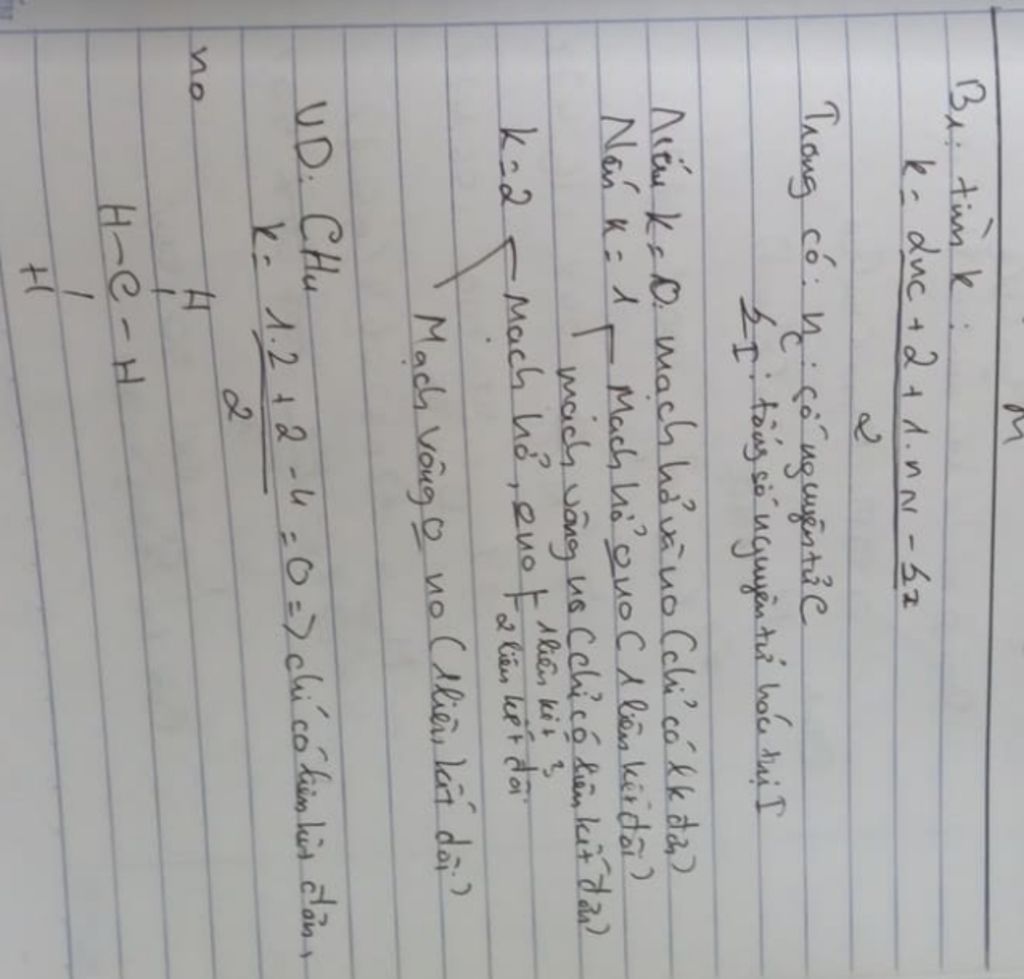 B1: tìm k:
k = 2nc + 2 + 1.nN - Σx
2
Trong có: nc: số nguyên tử C
ΣI: tổng số nguyên tử hoá trị I
Nếu k=0: mạch hở và no (chỉ có lk đơn)
Nếu k = 1 Mạch hở 0 no (1 liên kết đôi)
mạch vòng no (chỉ có liên kết đơn)
k=2 Mạch hở, 0 no 1 liên kết 3
2 liên kết đôi
Mạch vòng 0 no (1 liên kết đôi)
VD: CH4
k = 1.2 + 2 - 4 = 0 => chỉ có liên kết đơn,
2
no
H
H-C-H
H